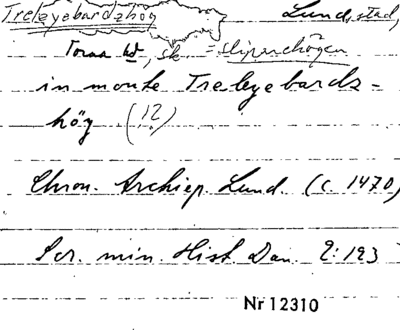 Treleyebardzhög Lund, stad,
Torna hd, sk. = Slipsnehögen
in monte Treleyebardz-
hög (12)
Chron. Archiep. Lund. (c. 1470)
Scr. min. Hist. Dan. 2: 123
Nr 12310